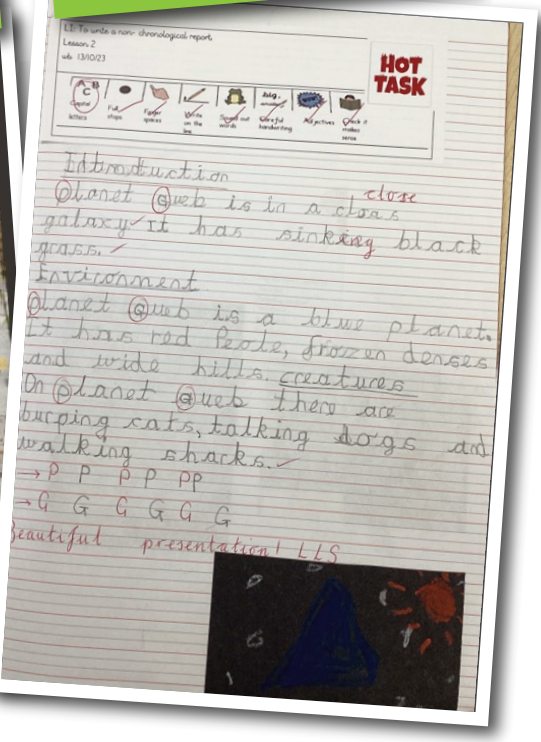 LI: To write a non-chronological report.
Lesson 2
wb 13/10/23
HOT
TASK
A B C
Capital letters
Full stops
Finger spaces
Write on the line
Sound out words
big.
Careful handwriting
Adjectives
Check it makes sense
Idtroduction
close
Planet Gueb is in a cloas
galaxy It has sinking black
grass.
Environment
Planet Gueb is a blue planet.
It has red Peole, frozen denses
and wide hills. creatures
On planet Gueb there are
burping cats, talking dogs and
walking shacks.
→ P P P P PP
→ G G G G G G
Beautiful presentation! LLS